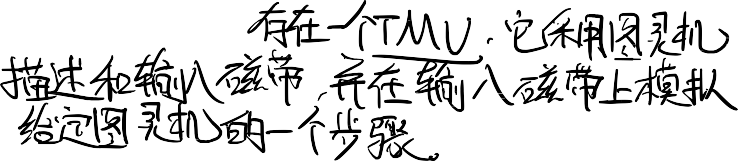 存在一个TMU，它利用图灵机
描述和输入磁带，并在输入磁带上模拟
给定图灵机的一个步骤。